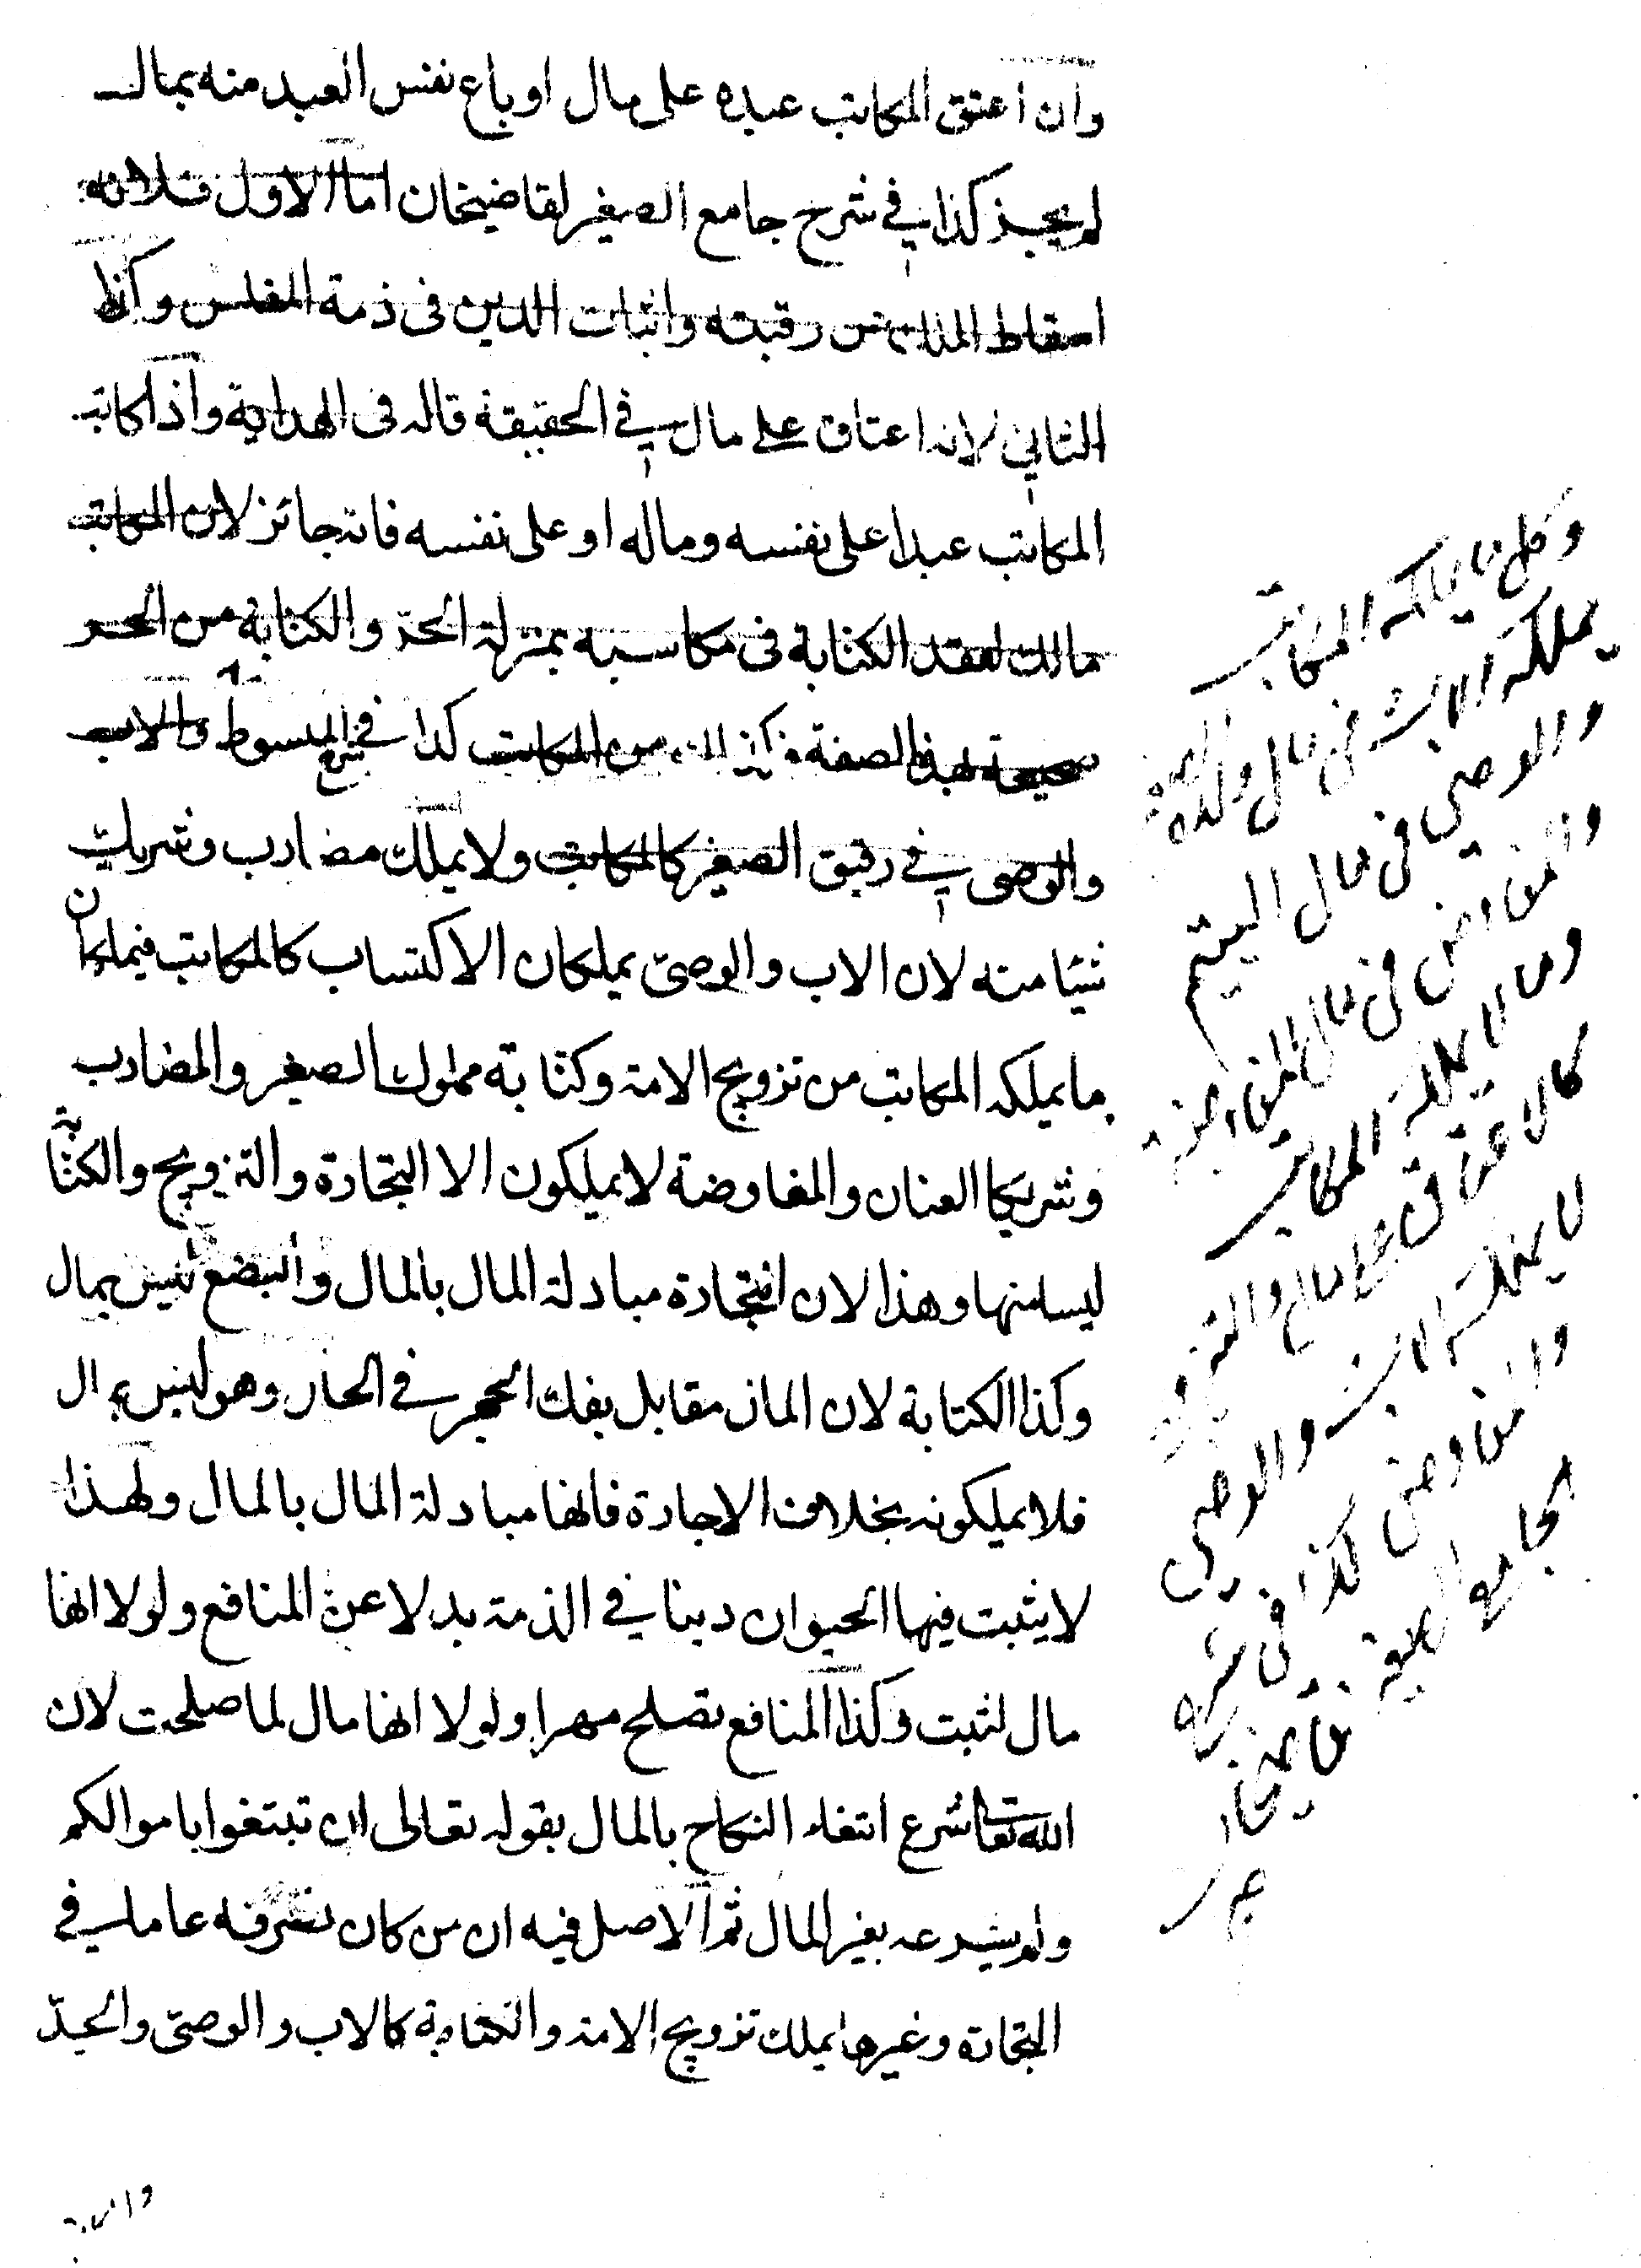 وان اعتق المكاتب عبده على مال او باع نفس العبد منه بمال
لم يجز كذا في شرح جامع الصغير لقاضيخان اما الاول فلانه
اسقاط الملك عن رقبته واثبات الدين فى ذمة المفلس وكذا
الثاني لانه اعتاق على مال في الحقيقة قاله فى الهداية واذا كاتب
المكاتب عبدا على نفسه وماله او على نفسه فانه جائز لان المكاتب
مالك لعقد الكتابة فى مكاسبه بمنزلة الحر والكتابة من الحر
صحيحة بهذه الصفة فكذلك من المكاتب كذا في شرح المبسوط والاب
والوصى في رقيق الصغير كالمكاتب ولا يملك مضارب وشريك
شيئا منه لان الاب والوصىّ يملكان الاكتساب كالمكاتب فيملكان
ما يملكه المكاتب من تزويج الامة وكتابة مملوك الصغير والمضارب
وشريكا العنان والمفاوضة لا يملكون الا التجارة والتزويج والكتابة
ليسا منها وهذا لان التجارة مبادلة المال بالمال والبضع ليس بمال
وكذا الكتابة لان المال مقابل بفك الحجر في الحال وهو ليس بمال
فلا يملكونه بخلاف الاجارة فانها مبادلة المال بالمال ولهذا
لا يثبت فيها الحيوان دينا في الذمة بدلا عن المنافع ولولا انها
مال لثبت وكذا المنافع تصلح مهرا ولولا انها مال لما صلحت لان
الله تعا شرع ابتغاء النكاح بالمال بقوله تعالى ان تبتغوا باموالكم
ولم يشرعه بغير المال ثم الاصل فيه ان من كان تصرفه عاما في
التجارة وغيرها يملك تزويج الامة والكتابة كالاب والوصىّ والجدّ
وكل ما يملكه المكاتب
يملكه الاب في مال ولده
والوصي في مال اليتيم
والمفاوض في مال المفاوضة
وما لا يملكه المكاتب
كالاعتاق على مال
لا يملكه الاب والوصي
والمفاوض كذا في شرح
الجامع الصغير لقاضيخان